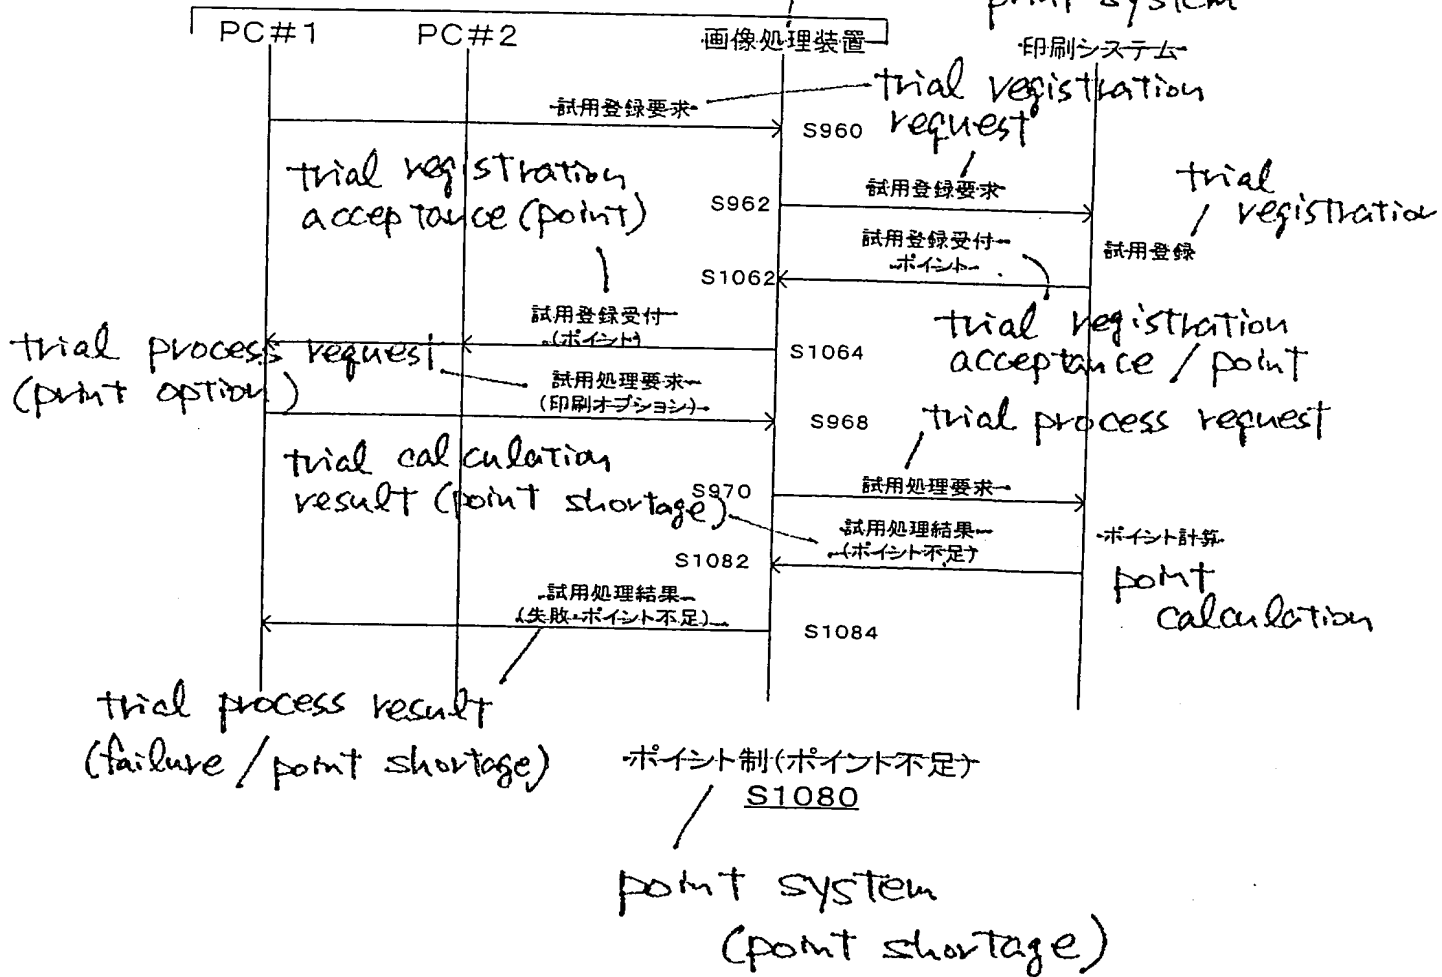 print system
PC#1
PC#2
画像処理装置
印刷システム
試用登録要求
trial registration
request
S960
trial registration
acceptance (point)
S962
試用登録要求
trial
registration
試用登録受付
ポイント
試用登録
S1062
試用登録受付
(ポイント)
S1064
trial registration
acceptance / point
trial process request
(print option)
試用処理要求
(印刷オプション)
S968
trial process request
trial calculation
result (point shortage)
S970
試用処理要求
試用処理結果
(ポイント不足)
S1082
ポイント計算
point
calculation
試用処理結果
(失敗・ポイント不足)
S1084
trial process result
(failure / point shortage)
ポイント制(ポイント不足)
S1080
point system
(point shortage)